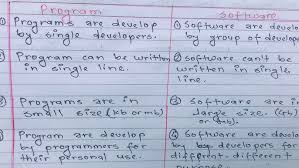 Program
Software
① Programs are develop
by single developers.
① Software are develop
by group of develop
② Program can be written
in single line.
② Software can't be
written in single
line.
③ Programs are in
small size (kb or mb)
③ Software are in
large size.
④ Program are develop
by programmers for
their personal use.
④ Software are develop
by developers for
different-different